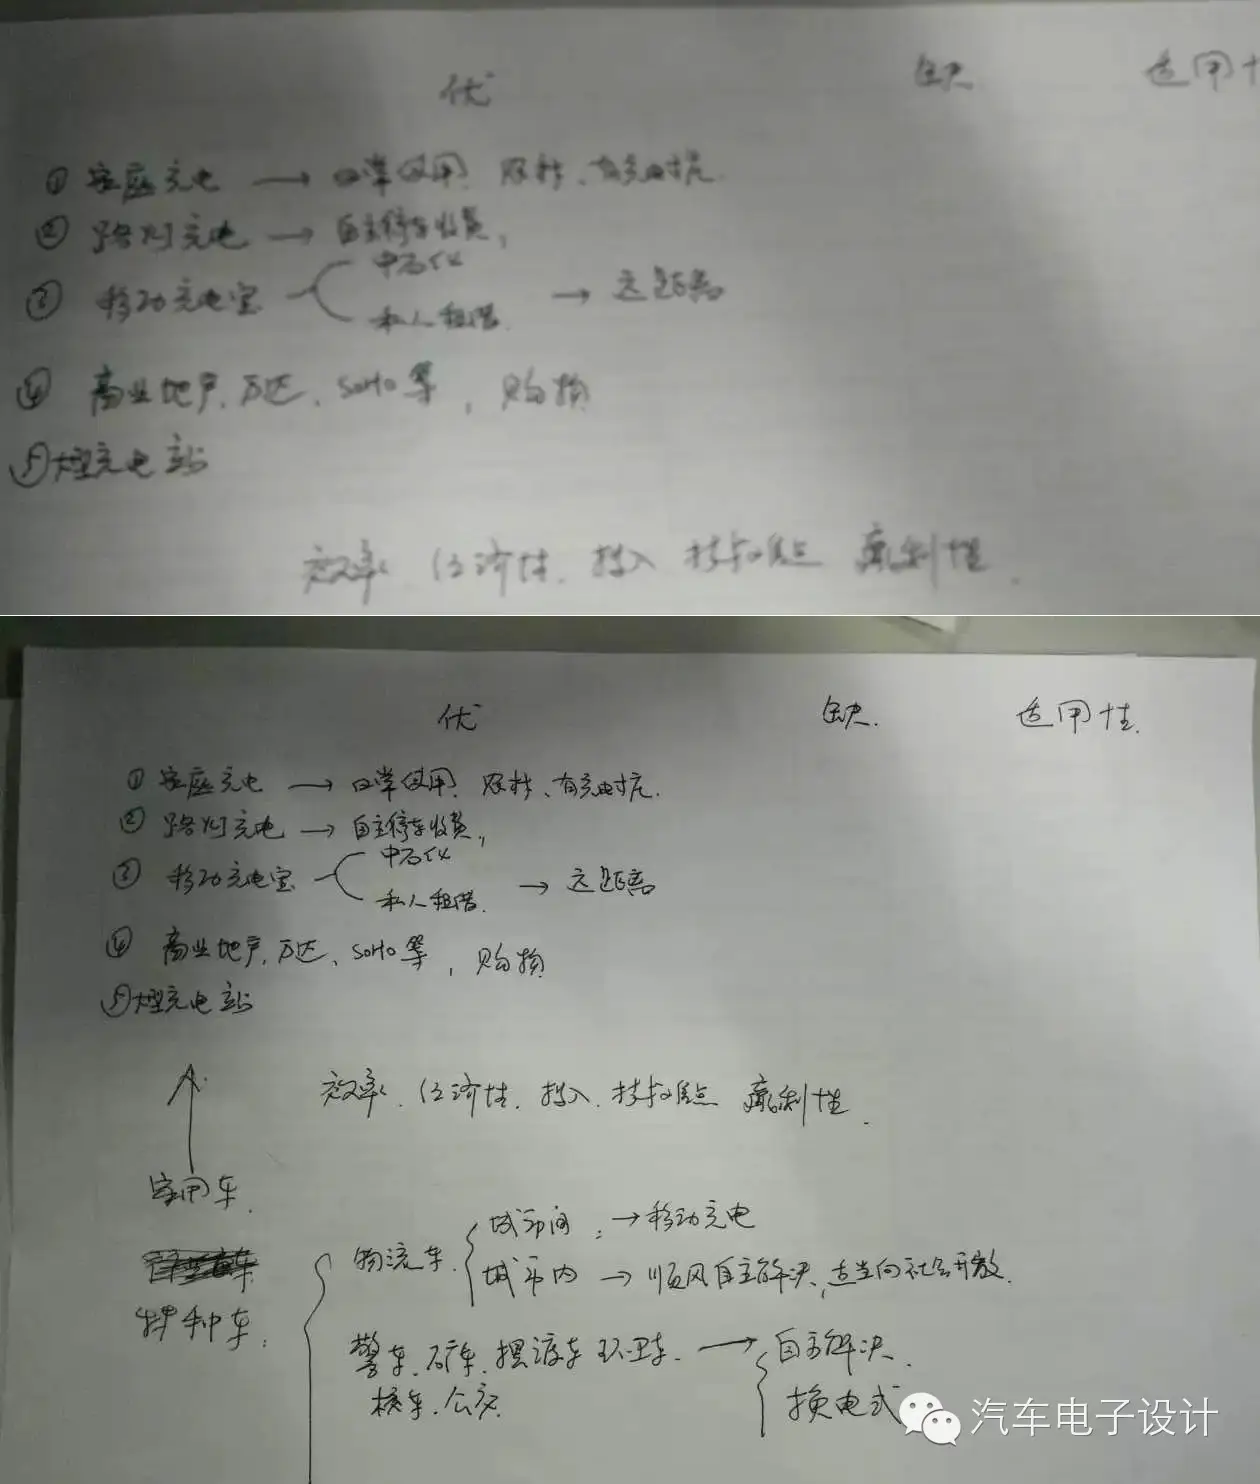 优 缺 适用
① 家庭充电 → 日常使用、 有充电
② 路灯充电 → 自主停车收费,
③ 移动充电宝 中石化
私人租借. → 远距离
④ 商业地产、万达、SOHO等,购物
⑤大型充电站
效率、经济性、投入、技术难点 赢利性.
优 缺. 适用性.
① 家庭充电 → 日常使用、 有充电
② 路灯充电 → 自主停车收费,
③ 移动充电宝 中石化
私人租借. → 远距离
④ 商业地产、万达、SOHO等,购物
⑤大型充电站
效率、经济性、投入、技术难点 赢利性.
家用车.
物流车. 城市间: → 移动充电
城市内 → 顺风自主解决,适当向社会开放.
特种车.
警车、矿车、摆渡车 环卫车. → 自主解决.
校车、公交 换电式
汽车电子设计